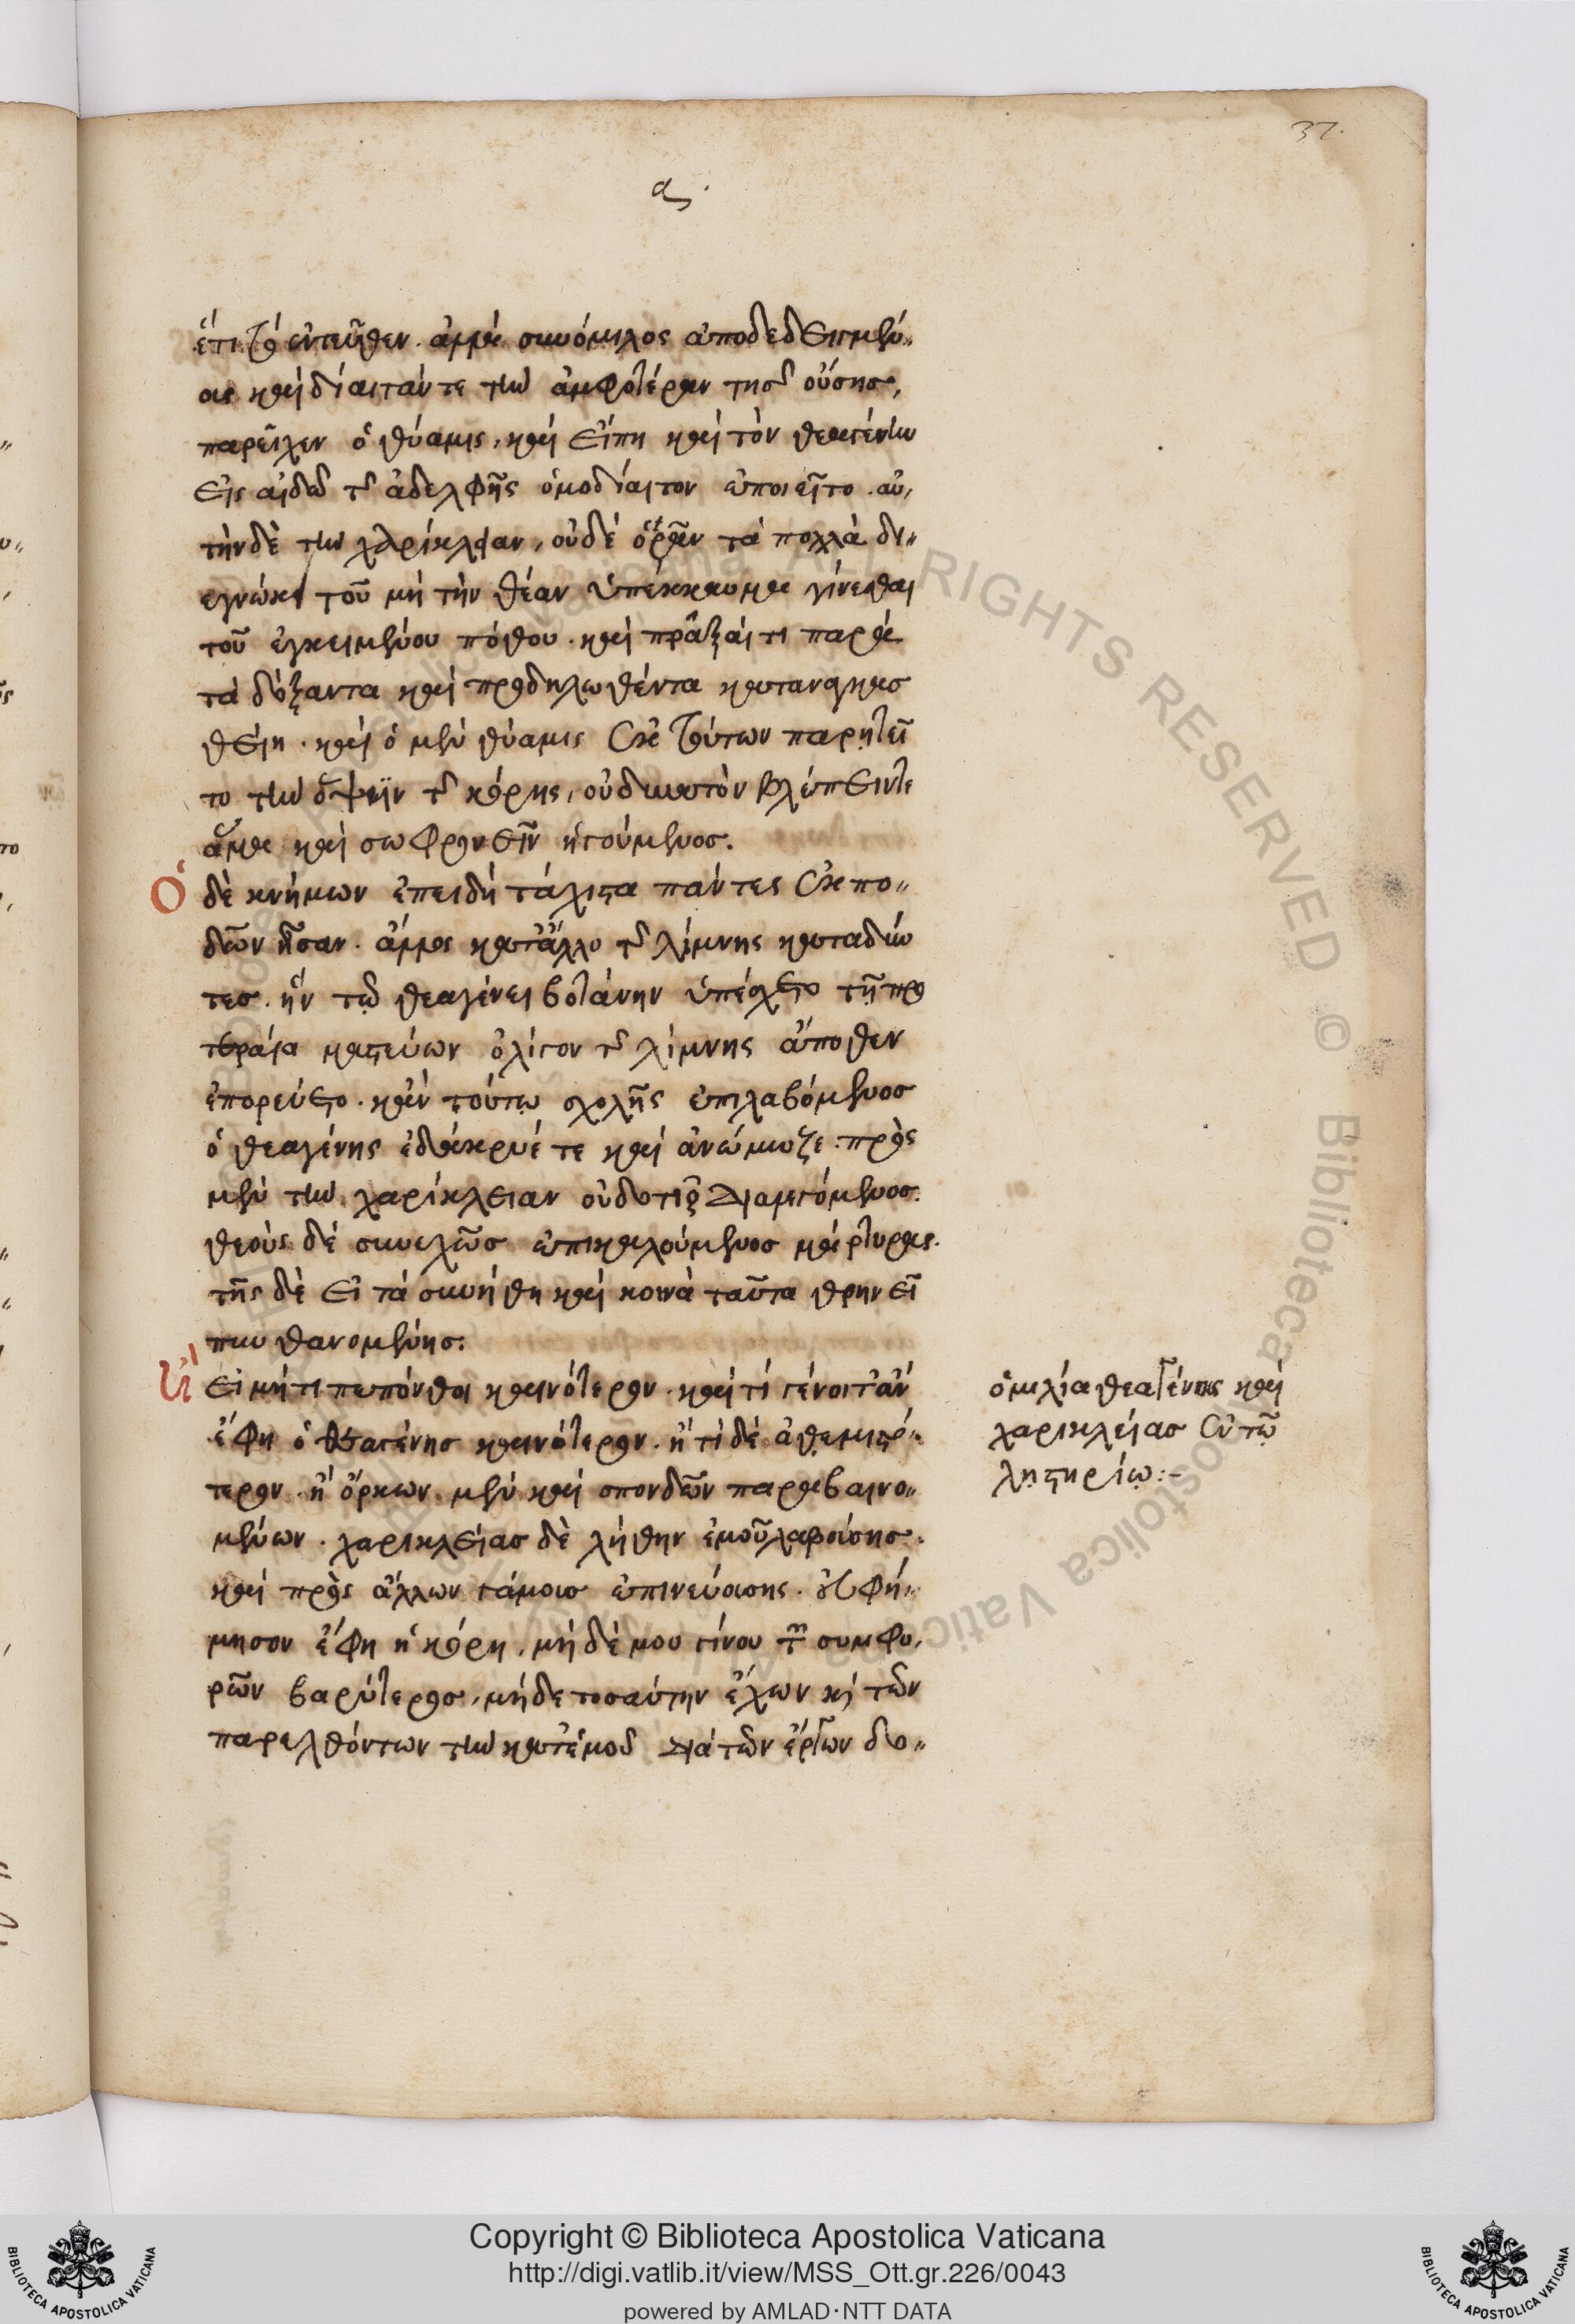 37.
α ς.
ἔτι τὸ ἐντεῦθεν. ἀλλὰ συνόμιλος ἀποδεδειγμέν"
ος καὶ δίαιτάν τε τὴν ἀμφοτέραν τῆς οὔσης,
παρεῖχεν ὁ θύαμις, καὶ εἴπη καὶ τὸν θεαγένην
εἰς αἰδῶ τῆς ἀδελφῆς ὁμοδίαιτον ἐποιεῖτο. αὐ,
τὴν δὲ τὴν χαρίκλειαν, οὐδὲ ὁρᾶν τὰ πολλὰ δι"
εγνώκει τοῦ μὴ τὴν θέαν ὑπέκκαυμα γίνεσθαι
τοῦ ἐγκειμένου πόθου. καὶ πρᾶξαί τι παρὰ
τὰ δόξαντα καὶ προδηλωθέντα καταναγκασ
θείη. καὶ ὁ μὲν θύαμις ἐκ τούτων παρῃτεῖ
το τὴν ὄψιν τῆς κόρης, οὐ δυνατὸν βλέπειν τε
ἅμα καὶ σωφρονεῖν ἡγούμενος.
Ὁ δὲ κνήμων ἐπειδὴ τάχιστα πάντες ἐκ πο"
δῶν ἦσαν. ἄλλος κατ' ἄλλο τῆς λίμνης καταδύν
τες. ἣν τῷ θεαγένει βοτάνην ὑπέσχετο τῇ προ
τεραία μαστεύων ὀλίγον τῆς λίμνης ἄποθεν
ἐπορεύετο. κἀν τούτῳ σχολῆς ἐπιλαβόμενος
ὁ θεαγένης ἐδάκρυέ τε καὶ ἀνώμωζε. πρὸς
μὲν τὴν χαρίκλειαν οὐδοτιοῦν διαλεγόμενος.
θεοὺς δὲ συνεχῶς ἐπικαλούμενος μάρτυρας.
τῆς δὲ εἰ τὰ συνήθη καὶ κοινὰ ταῦτα θρηνεῖ
πυνθανομένης.
εἰ μή τι πεπόνθοι καινότερον. καὶ τί γένοιτ' ἂν
ἔφη ὁ θεαγένης καινότερον. ἢ τί δὲ ἀθεμιτό"
τερον. ἢ ὅρκων μὲν καὶ σπονδῶν παραβαινο"
μένων. χαρικλείας δὲ λήθην ἐμοῦ λαβούσης.
καὶ πρὸς ἄλλων γάμους ἐπινευούσης. εὐφή"
μησον ἔφη ἡ κόρη, μὴ δέ μου γίνου τῶν συμφο,
ρῶν βαρύτερος, μή δε τοσαύτην ἔχων κὴ τῶν
παρελθόντων τὴν κατ' ἐμοῦ διὰ τῶν ἔργων δο"
ὁμιλία θεαγένους καὶ
χαρικλείας ἐν τῷ
λῃστηρίῳ:-
ALL RIGHTS RESERVED © Biblioteca Apostolica Vaticana
Copyright © Biblioteca Apostolica Vaticana
http://digi.vatlib.it/view/MSS_Ott.gr.226/0043
powered by AMLAD·NTT DATA
BIBLIOTECA APOSTOLICA VATICANA
BIBLIOTECA APOSTOLICA VATICANA